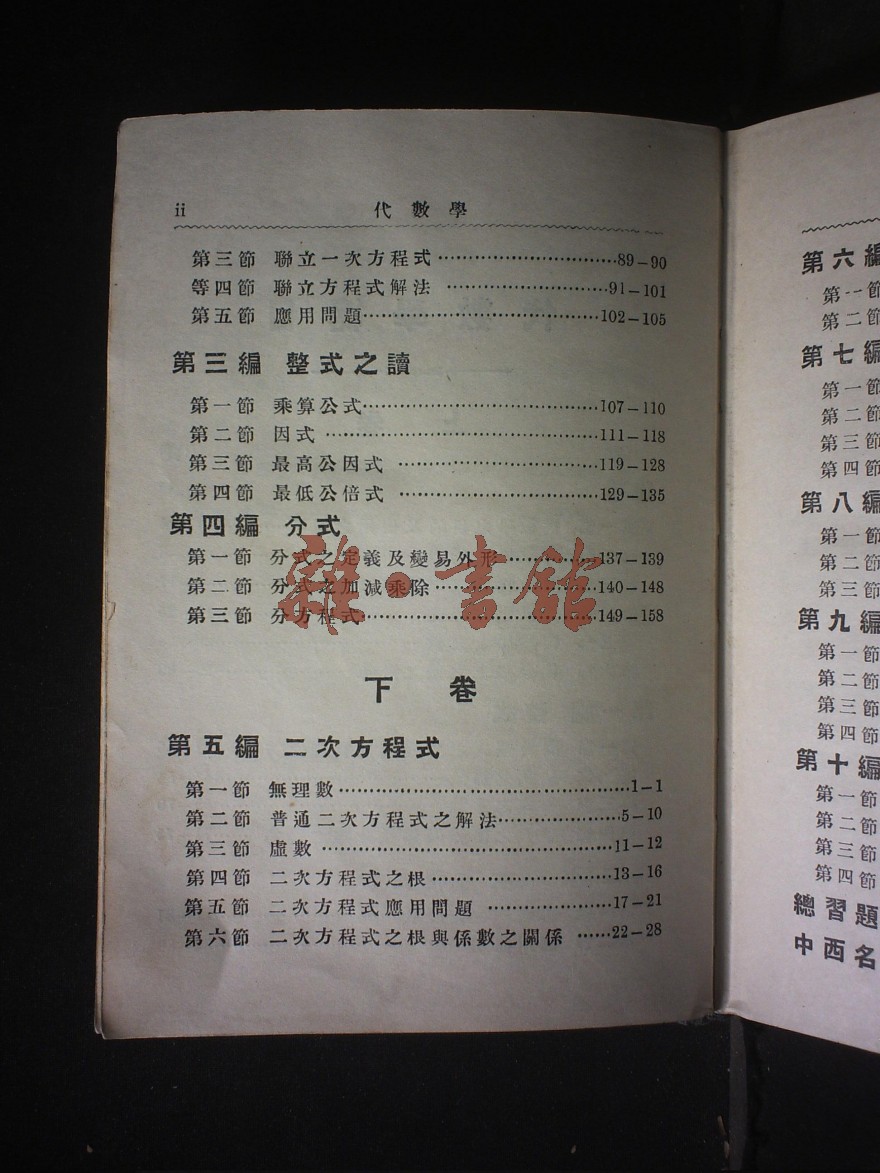 ii 代數學
第三節 聯立一次方程式······························89—90
等四節 聯立方程式解法 ···························91—101
第五節 應用問題·······································102—105
第三編 整式之讀
第一節 乘算公式·······································107—110
第二節 因式 ·············································111—118
第三節 最高公因式 ·································119—128
第四節 最低公倍式 ·································129—135
第四編 分式
第一節 分式之定義及變易外形···············137—139
第二節 分式之加減乘除···························140—148
第三節 分方程式·······································149—158
雜·書館
下卷
第五編 二次方程式
第一節 無理數················································1—1
第二節 普通二次方程式之解法·····················5—10
第三節 虛數 ················································11—12
第四節 二次方程式之根······························13—16
第五節 二次方程式應用問題 ·····················17—21
第六節 二次方程式之根與係數之關係 ······22—28
第六編
第一節
第二節
第七編
第一節
第二節
第三節
第四節
第八編
第一節
第二節
第三節
第九編
第一節
第二節
第三節
第四節
第十編
第一節
第二節
第三節
第四節
總習題
中西名